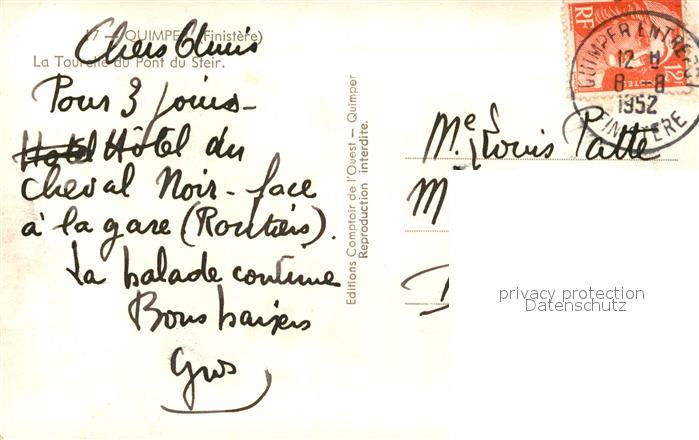 17 - QUIMPER (Finistère)
La Tourelle du Pont du Steir.
Chers Amis
Pour 3 jours -
Hotel Hôtel du
Cheval Noir - face
à la gare (Routiers).
La balade continue
Bons baisers
Editions Comptoir de l'Ouest — Quimper
Reproduction interdite.
QUIMPER ENTREPOT
12 H
8 - 8
1952
FINISTÈRE
RF
12F
POSTES
Me Louis Patte
M
privacy protection
Datenschutz